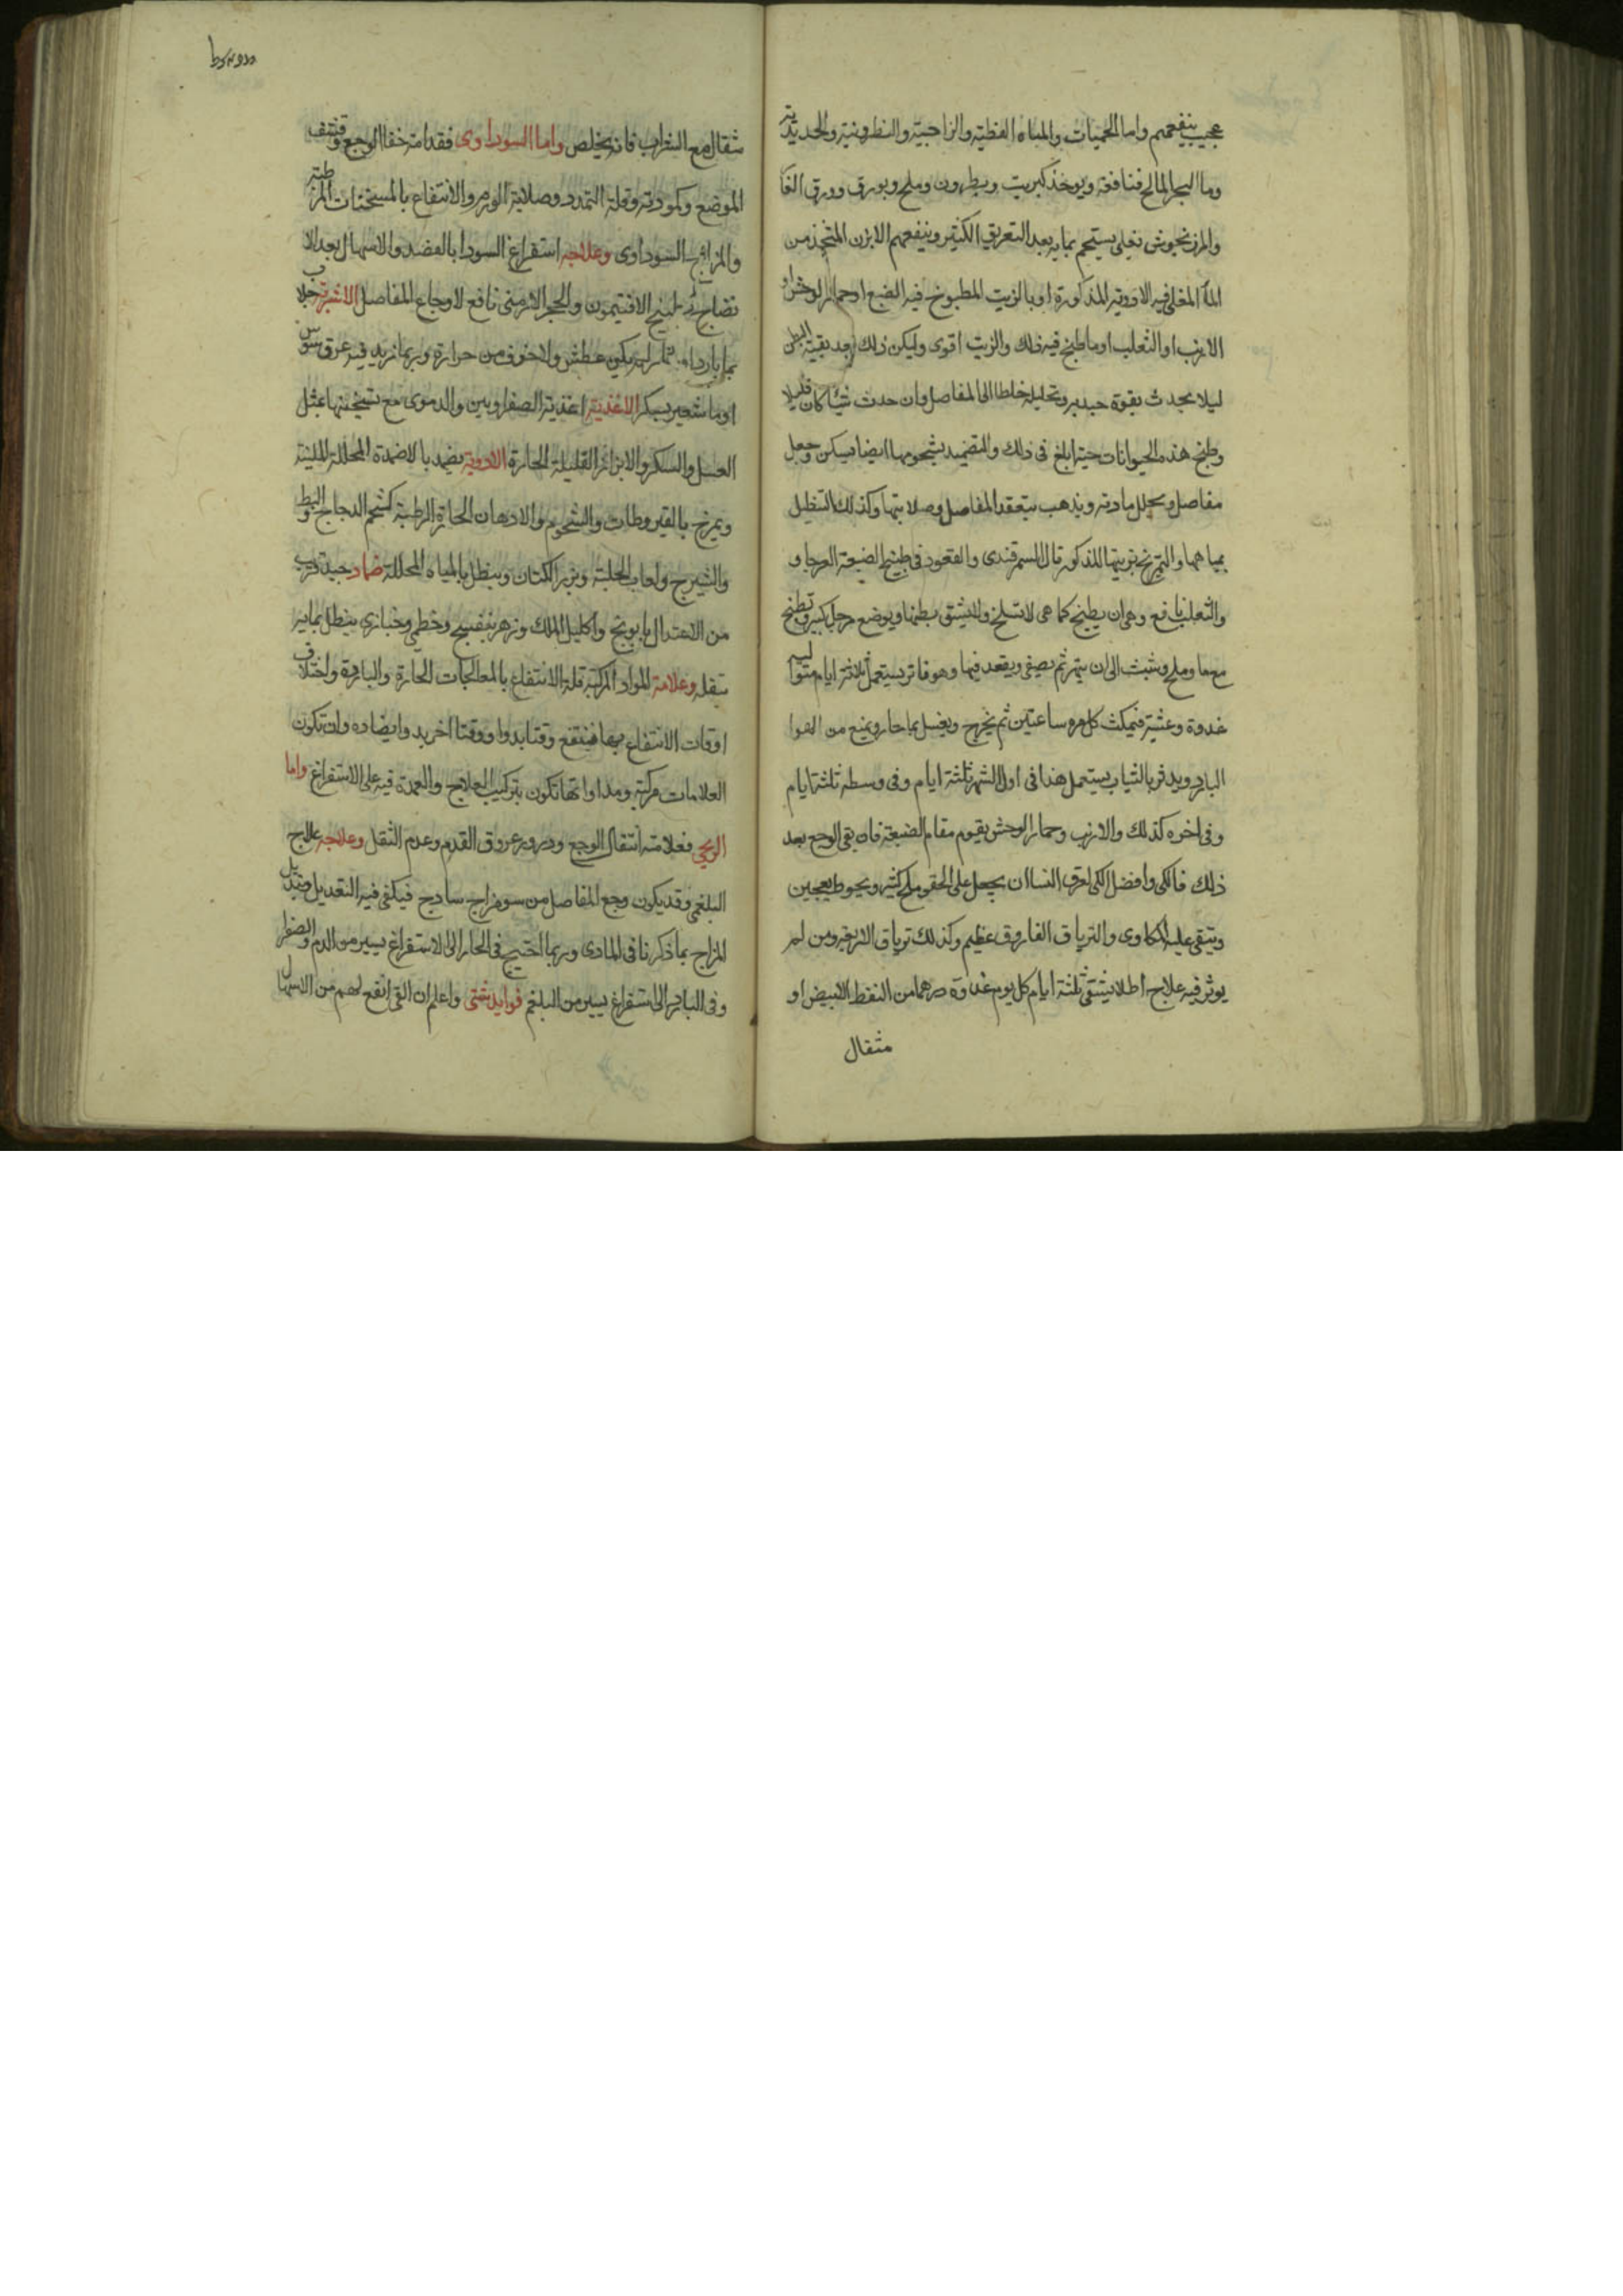 عجيب ينفعهم واما الحميات والمياه القطيه والزاجيته والنطرونية والحديديته
وما البحر المالح فنافعة ويوخذ كبريت ونطرون وملح وبورق وورق الغا
والمرزنجوش تغلى يستحم بمايه بعد التعريق الكثير وينفعهم الابزن المتخذ من
الما المغلى فيه الادويه المذكورة او بالزيت المطبوخ فيه الضبع او حمار الوحش او
الارنب او الثعلب او ما طبخ فيه ذلك والزيت اقوى وليكن ذلك بعد تنقية البدن
ليلا يحدث بقوة جذبه وتحليله خلطا الى المفاصل وان حدث شيا كان قليلا
وطبخ هذه الحيوانات حية ابلغ فى ذلك والتضميد بشحومها ايضا يسكن وجع ال
مفاصل ويحلل مادته ويذهب بتعقد المفاصل وصلابتها وكذلك التنطيل
بمياهها والتمريخ بزيتها المذكور قال السمرقندى والقعود فى طبيخ الضبعة العرجا و
والثعلب نافع وهى ان يطبخ كما هى لا تسلخ ولا يشق بطنها ويوضع مرجل كبير وتطبخ
مع ما وملح وشبث الى ان يتهر ثم يصفى ويقعد فيها وهو فاتر يستعمل ثلاثة ايام متواليه
غدوة وعشية فيمكث كل مره ساعتين ثم يخرج ويغسل بما حار ويمنع من الهوا
البارد ويدثر بالثياب يستعمل هذا فى اول الشهر ثلثة ايام وفى وسطه ثلثة ايام
وفى اخره كذلك والارنب وحمار الوحش يقوم مقام الضبعة فان بقى الوجع بعد
ذلك فالكى وافضل الكى لعرق النسا ان يجعل على الحقو ملح كثير ويحوط بعجين
ويتقى عليه المكاوى والترياق الفاروق عظيم وكذلك ترياق الاربعه ومن لم
يوثر فيه علاج اطلا يستقى ثلثة ايام كل يوم غدوة درهما من النفط الابيض او
مثقال
مثقال مع الشراب فانه يخلص واما السوداوى فقدامته خفا الوجع وقشف
الموضع وكمودته وقلة التمدد وصلابة الورم والانتفاع بالمسخنات المرطبه
والمزاج السوداوى وعلاجه استفراغ السودا بالفصد والاسهال بعد الا
نضاج بطبيخ الافتيمون والحجر الارمنى نافع لاوجاع المفاصل الاشربه جلاب
بما بارد ما لم يكن عطش ولا خوف من حرارة وربما زيد فيه عرق سوس
او ما شعير بسكر الاغذية اغذية الصفراويين والدموى مع تسخينها بمثل
العسل والسكر والابزار القليلة الحارة الادوية يضمد بالاضمدة المحللة الملينة
ويمرخ بالقيروطات والشحوم والادهان الحارة الرطبة كشحم الدجاج والبط
والشيرج ولعاب الحلبة وبزر الكتان وينطل بالمياه المحللة ضماد جيد قريب
من الاعتدال بابونج واكليل الملك وزهر بنفسج وخطمى وخبازى ينطل بمايه
بثقله وعلامة المواد المركبه قلة الانتفاع بالمعالجات الحارة والباردة واختلاف
اوقات الانتفاع بها فينتفع وقتا بدوا ووقتا اخر يد وايضاده وان تكون
العلامات مركبة ومداواتها تكون بتركيب العلاج والعمدة فيه على الاستفراغ واما
الريحى فعلامته انتقال الوجع ودرور عروق القدم وعدم الثقل وعلاجه علاج
البلغمى وقد يكون وجع المفاصل من سو مزاج ساذج فيكفى فيه التعديل وتبديل
المزاج بما ذكرنا فى المادى وربما احتيج فى الحار الى الاستفراغ يسير من الدم والصفرا
وفى البارد الى استفراغ يسير من البلغم فوايد شتى واعلم ان القى انفع لهم من الاسهال